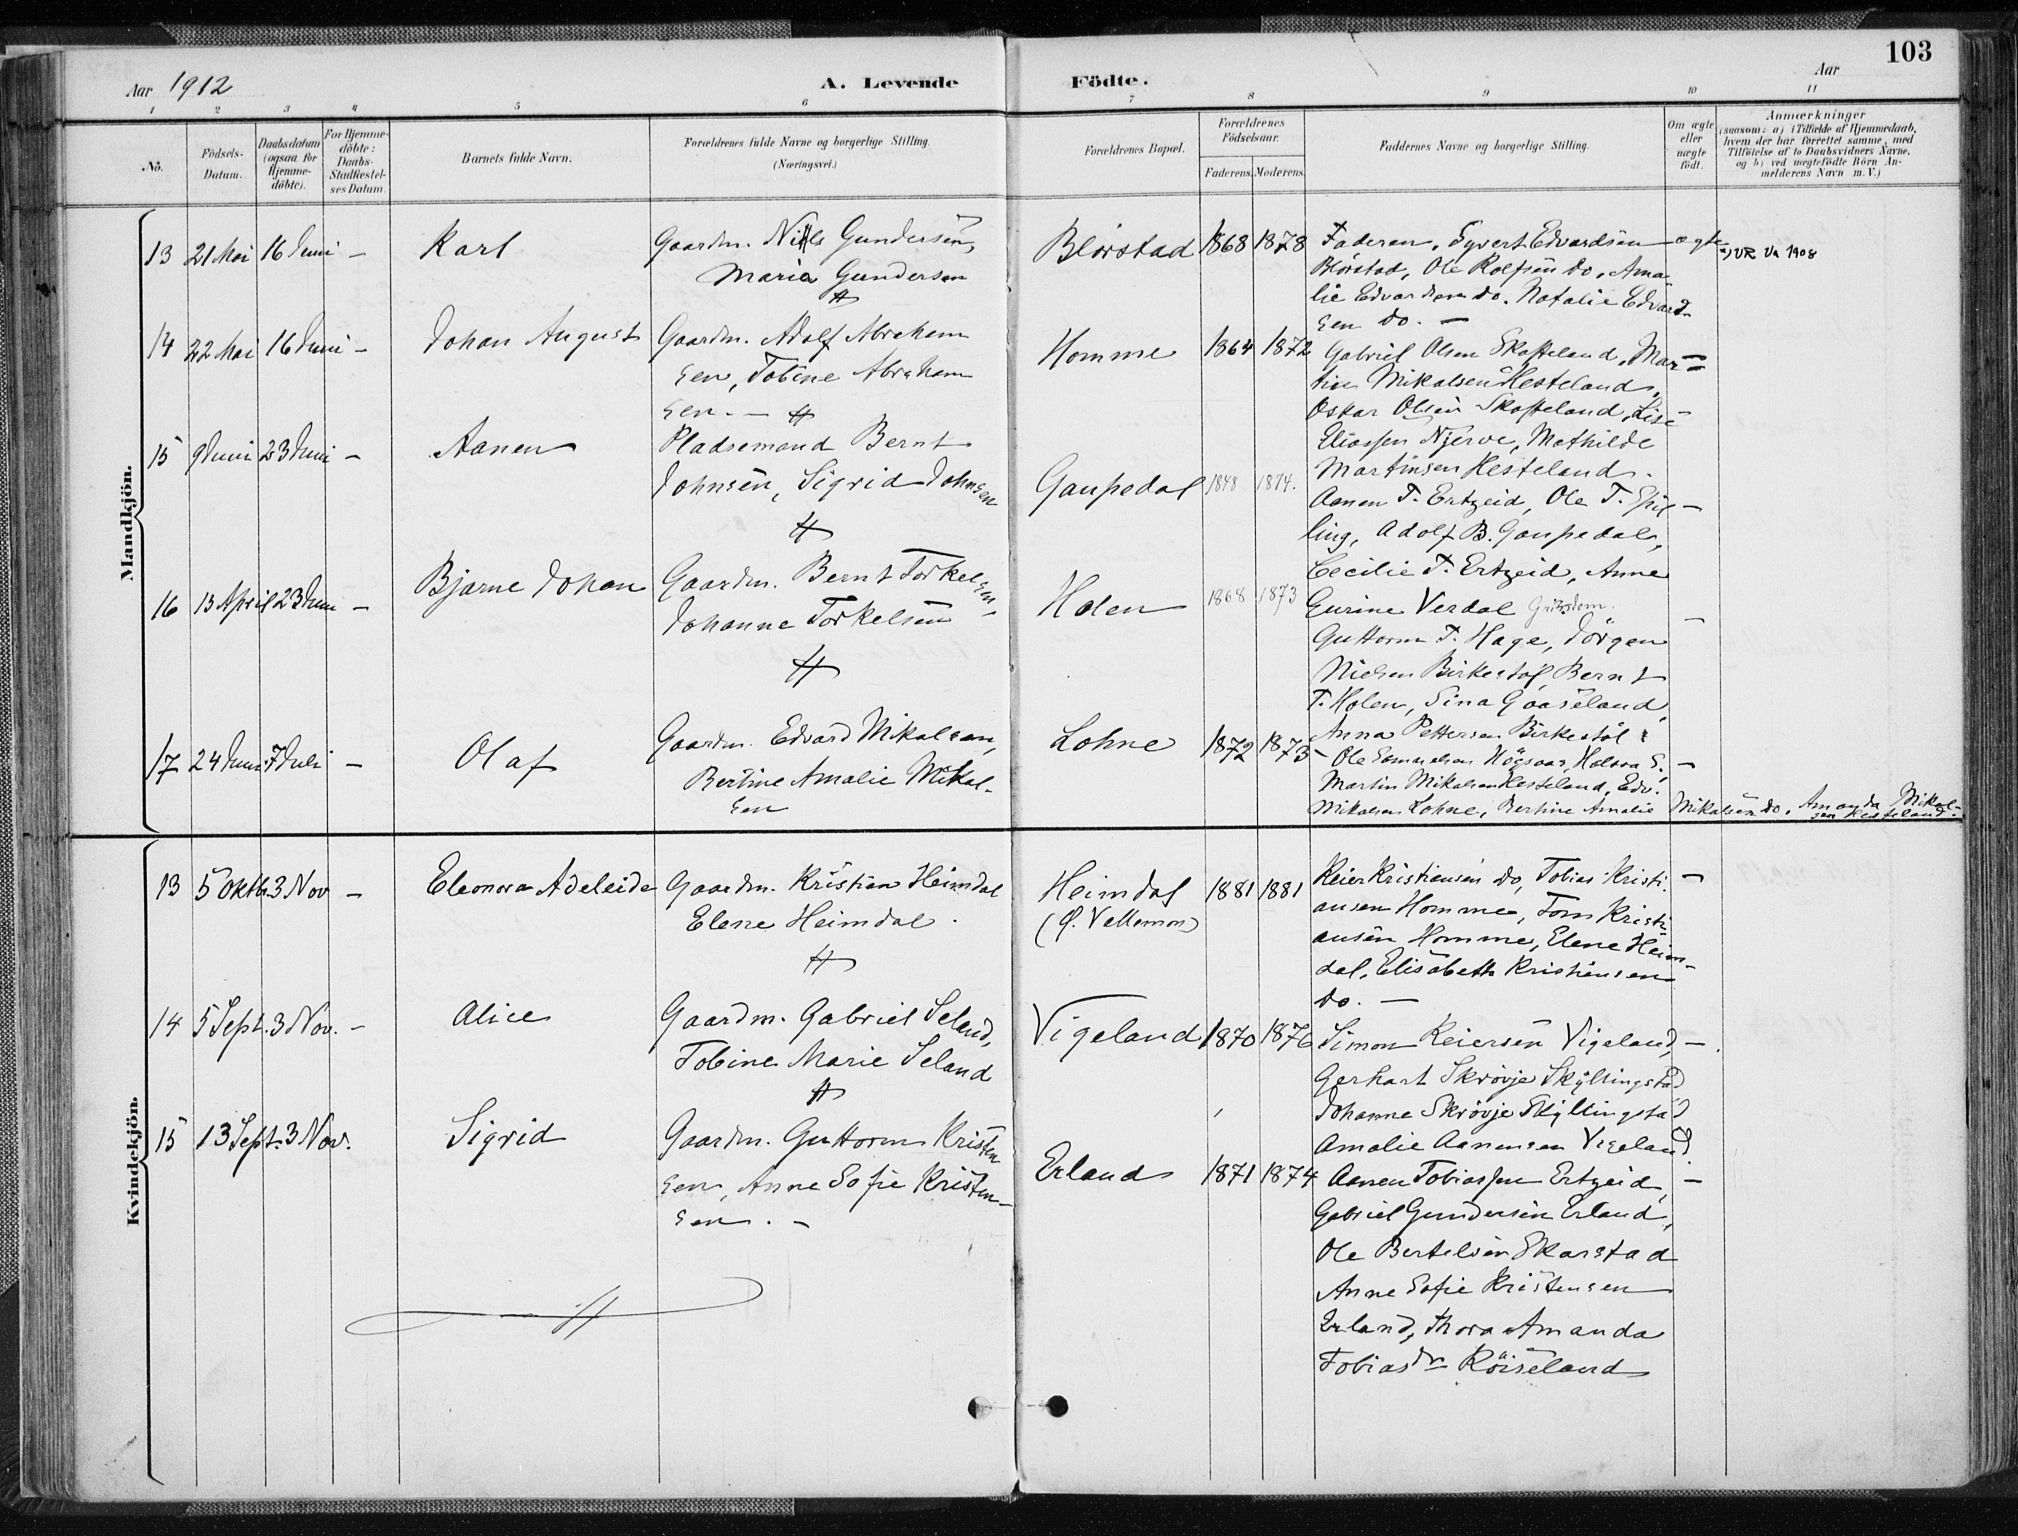 103
Aar 1912
A. Levende Födte.
Aar
1 2 3 4 5 6 7 8 9 10 11
No.
Födsels-Datum.
Daabsdatum (ogsaa for Hjemme-döbte).
For Hjemme-döbte: Daabs-Stadfæstel-ses Datum.
Barnets fulde Navn.
Forældrenes fulde Navne og borgerlige Stilling.
(Næringsvei.)
Forældrenes Bopæl.
Forældrenes Födselsaar.
Faderens. Moderens.
Faddernes Navne og borgerlige Stilling.
Om ægte eller uægte födt.
Anmærkninger
(saasom: a) i Tilfælde af Hjemmedaab, hvem der har forrettet samme, med Tilföielse af to Daabsvidners Navne, og b) ved uægtefödte Börn An-melderens Navn m. V.)
Mandkjön.
13 21 Mai 16 Juni – Karl
Gaardm. Nils Gundersen,
Maria Gundersen
Blørstad 1868 1878
Faderen, Syvert Edvardsen
Blørstad, Ole Rolfsen do, Ama
lie Edvardsen do. Natalie Edvard-
sen do. –
ægte
VR Va 1908
14 22 Mai 16 Juni – Johan August
Gaardm. Adolf Abraham
sen, Tobine Abraham
sen. –
Homme 1864 1872
Gabriel Olsen Skofteland, Mar-
tin Mikalsen Hesteland,
Oskar Olsen Skofteland, Lise
Eliassen Njerve, Mathilde
Martinsen Hesteland.
15 9 Juni 23 Juni – Aanen
Pladsemand Bernt
Johnsen, Sigrid Johnsen
Gaupedal 1848 1874.
Aanen T. Ertzeid, Ole T. Spil-
ling, Adolf B. Gaupedal,
Cecilie T. Ertzeid, Anne
Eurine Verdal
16 13 April 23 Juni – Bjarne Johan
Gaardm. Bernt Torkelsen,
Johanne Torkelsen
Holen 1868 1873
Guttorm T. Hage, Jörgen
Nielsen Birkestøl, Bernt
T. Holen, Sina Gaaseland,
Anna Pettersen Birkestøl.
17 24 Juni 7 Juli – Olaf
Gaardm. Edvard Mikalsen,
Bertine Amalie Mikal-
sen
Lohne 1872 1873
Ole Høgsaas,
Martin Mikalsen Hesteland, Edv.
Mikalsen Lohne, Bertine Amalie Mikalsen do. Amanda Mikal-
sen Hesteland.
Kvindekjön.
13 5 Oktb. 3 Nov – Eleonora Adeleide
Gaardm. Kristian Heimdal
Elene Heimdal.
Heimdal 1881 1881
(Ø. Vallemon)
Keier Kristiansen do, Tobias Kristi-
ansen Homme, Tom Kristi
ansen Homme, Elene Heim-
dal, Elisabeth Kristiansen
do. –
14 5 Sept. 3 Nov. – Alice
Gaardm. Gabriel Seland,
Tobine Marie Seland
Vigeland 1870 1876
Simon Keiersen Vigeland,
Gerhart Skrøvje Skyllingstad
Johanne Skrøvje Skyllingstad
Amalie Aanensen Vigeland.
15 13 Sept. 3 Nov. Sigrid
Gaardm. Guttorm Kristen
sen, Anne Sofie Kristen-
sen. –
Erland 1871 1874
Aanen Tobiassen Ertzeid,
Gabriel Gundersen Erland,
Ole Bertelsen Skarstad
Anne Sofie Kristensen
Erland, Thora Amanda
Tobiasdr Röiseland